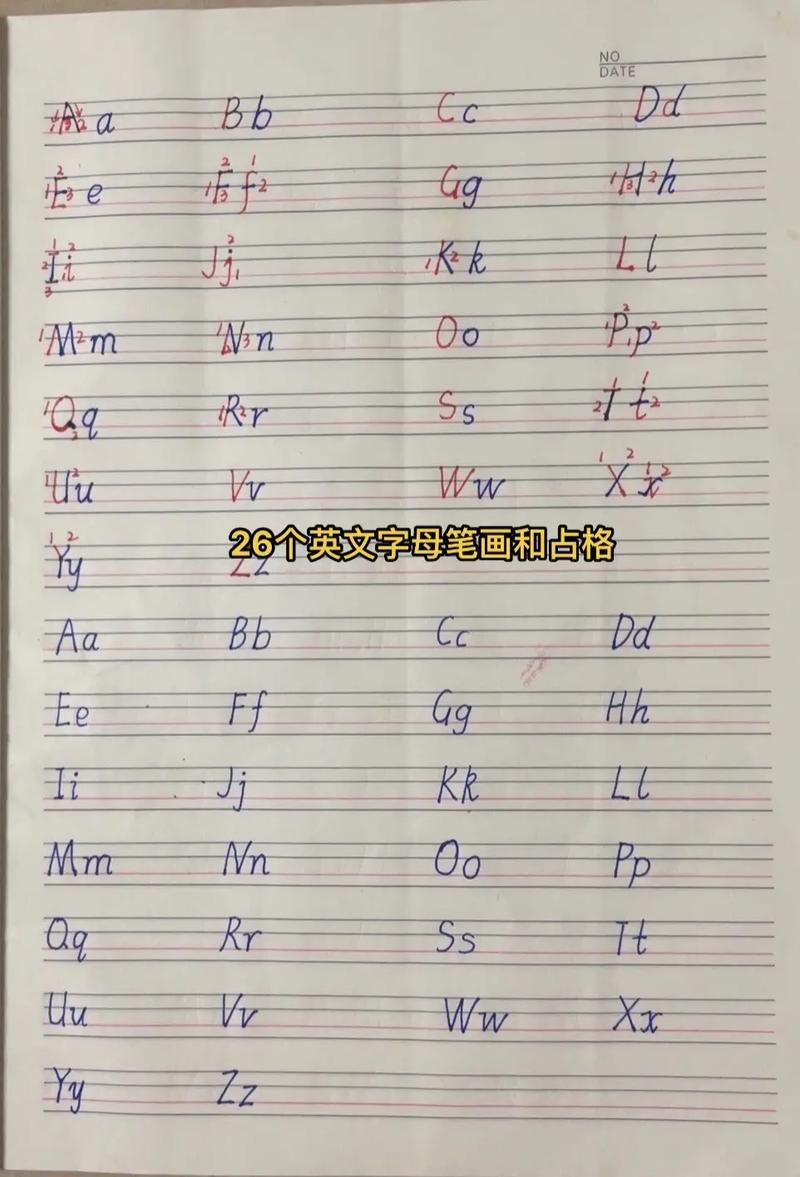 NO
DATE
Aa Bb Cc Dd
Ee Ff Gg Hh
Ii Jj Kk Ll
Mm Nn Oo Pp
Qq Rr Ss Tt
Uu Vv Ww Xx
Yy Zz
26个英文字母笔画和占格
Aa Bb Cc Dd
Ee Ff Gg Hh
Ii Jj Kk Ll
Mm Nn Oo Pp
Qq Rr Ss Tt
Uu Vv Ww Xx
Yy Zz